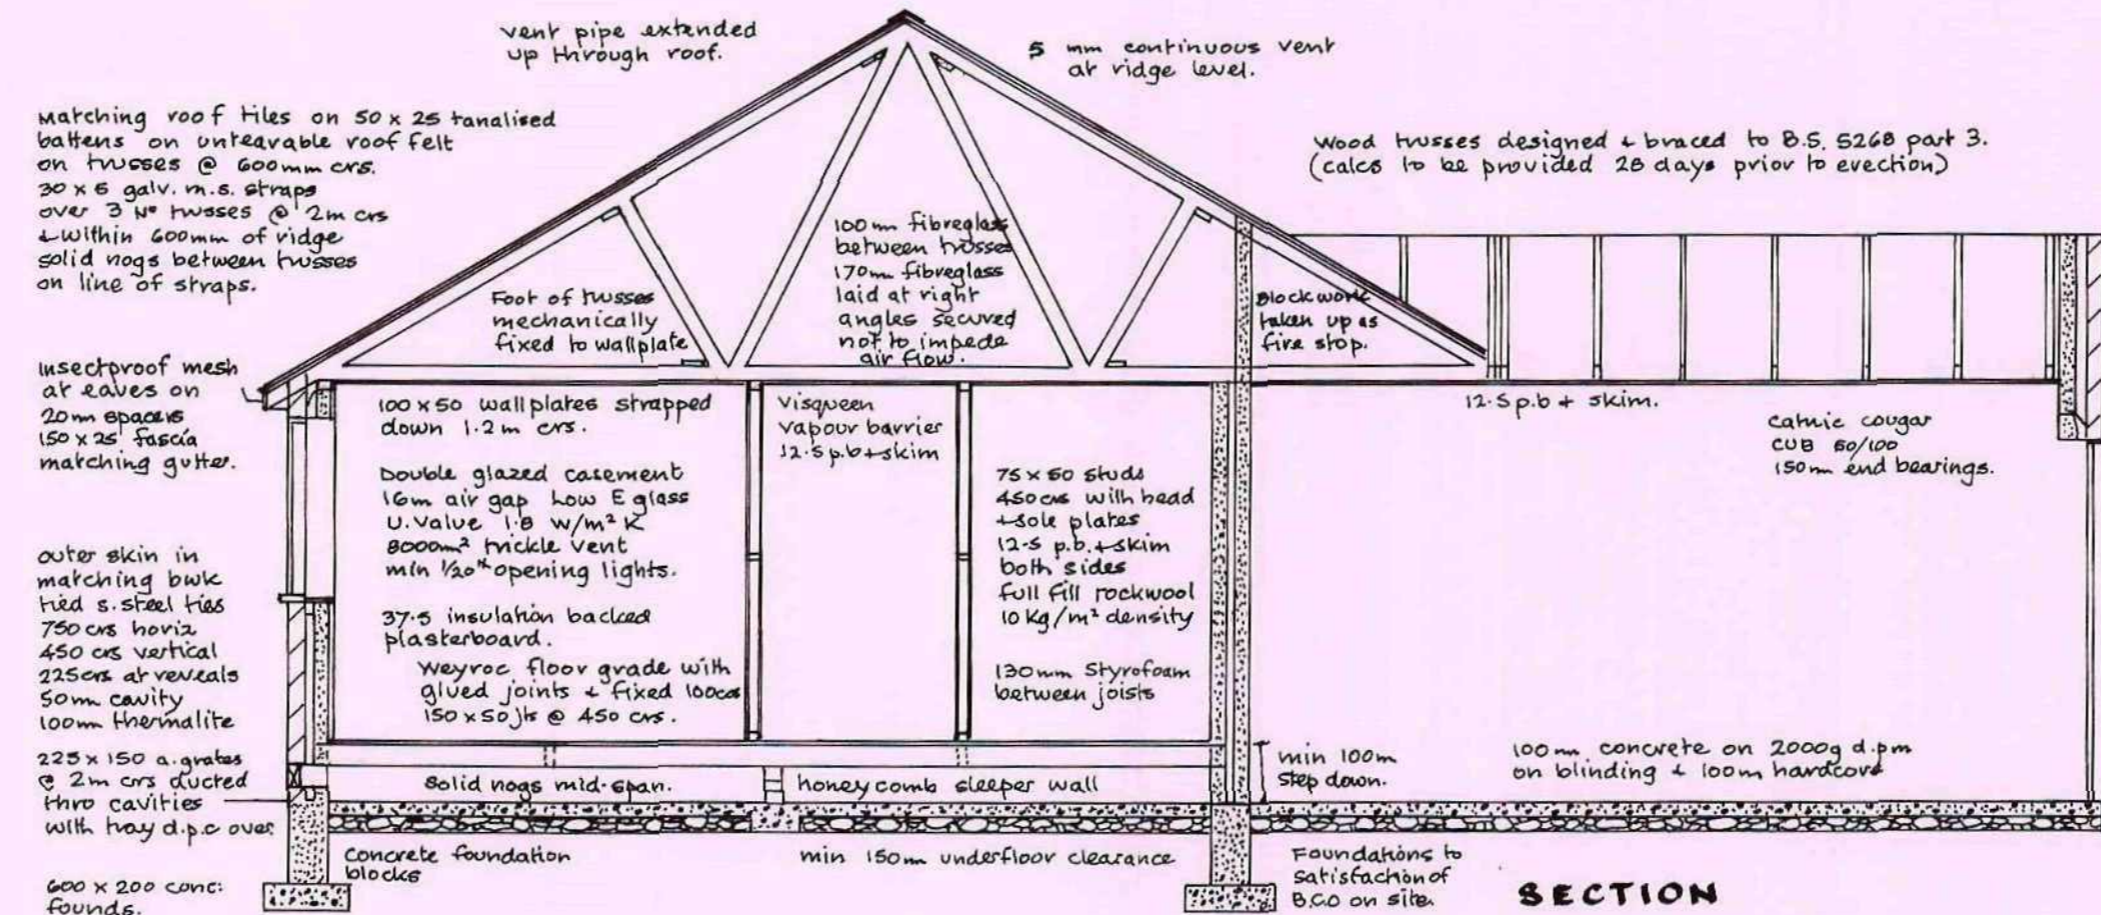 vent pipe extended
up through roof.
5 mm continuous vent
at ridge level.
Matching roof tiles on 50 x 25 tanalised
battens on untearable roof felt
on trusses @ 600mm crs.
30 x 5 galv. m.s. straps
over 3 No trusses @ 2m crs
+ within 600mm of ridge
solid nogs between trusses
on line of straps.
Wood trusses designed + braced to B.S. 5268 part 3.
(calcs to be provided 28 days prior to erection)
100mm fibreglass
between trusses
170mm fibreglass
laid at right
angles secured
not to impede
air flow.
Foot of trusses
mechanically
fixed to wallplate
Blockwork
taken up as
fire stop.
insectproof mesh
at eaves on
20mm spacers
150 x 25 fascia
matching gutter.
100 x 50 wallplates strapped
down 1.2m crs.
Visqueen
vapour barrier
12.5 p.b + skim
12.5 p.b + skim.
Catnic cougar
CUB 50/100
150mm end bearings.
Double glazed casement
16m air gap Low E glass
U.Value 1.8 W/m² K
8000m² trickle vent
min 1/20th opening lights.
75 x 50 studs
450crs with head
+ sole plates
12.5 p.b. + skim
both sides
full fill rockwool
10 Kg/m² density
outer skin in
matching bwk
tied s. steel ties
750 crs horiz
450 crs vertical
225crs at reveals
50mm cavity
100mm thermalite
37.5 insulation backed
plasterboard.
Weyroc floor grade with
glued joints + fixed 100crs
150 x 50 jts @ 450 crs.
130mm Styrofoam
between joists
225 x 150 a.grates
@ 2m crs ducted
thro cavities
with tray d.p.c over
Solid nogs mid-span.
honeycomb sleeper wall
min 100m
step down.
100mm concrete on 2000g d.pm
on blinding + 100m hardcore
Concrete foundation
blocks
min 150mm underfloor clearance
Foundations to
satisfaction of
B.C.O on site.
600 x 200 conc:
founds.
SECTION